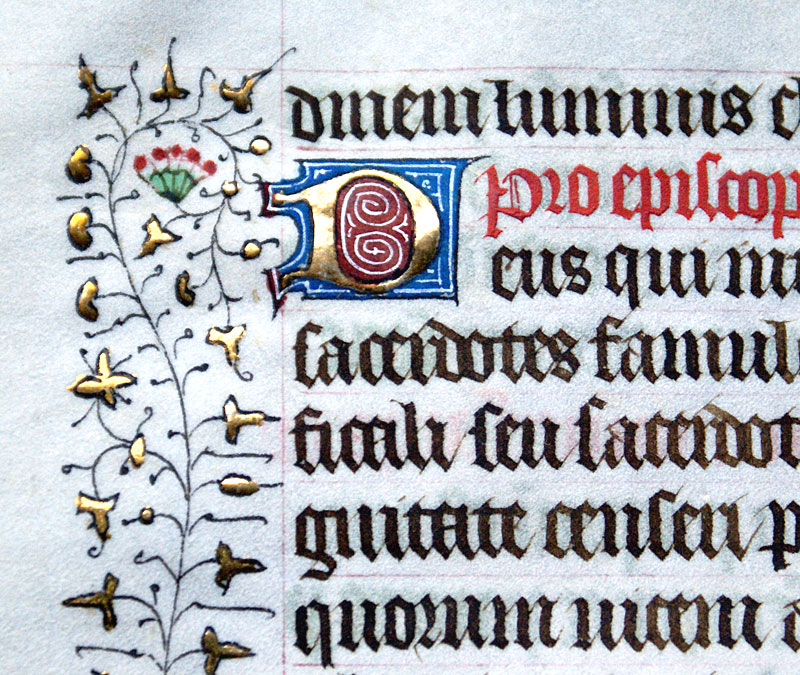 dinem luminis
Pro episcop
Deus qui in
sacerdotes famul
ficali seu sacerdot
gnitate censeri p
quorum uicem